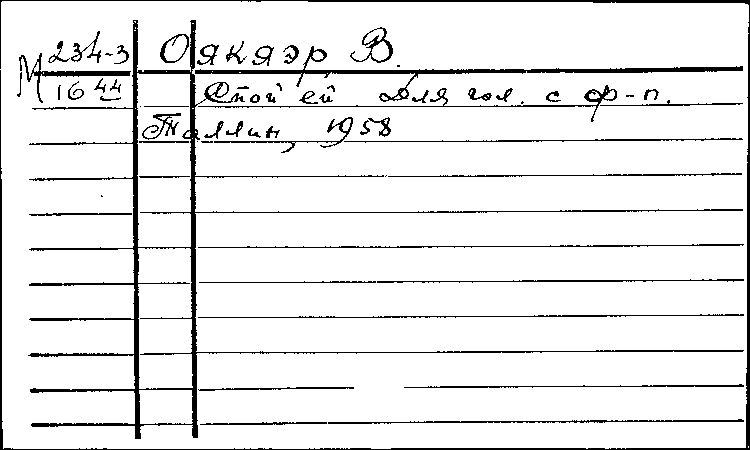 М 234-3 Оякяэр В.
16 44 Спой ей Для гол. с ф-п.
Таллин, 1958